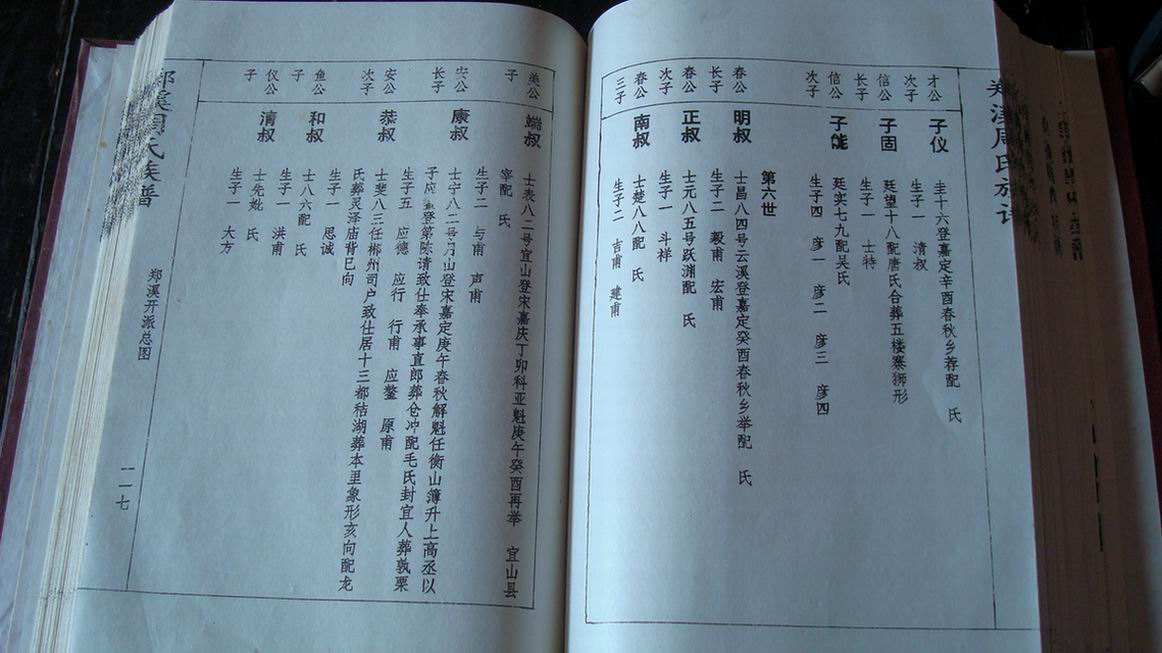 郑溪周氏族谱
才公
次子
子仪
圭十六登嘉定辛酉春秋乡荐配 氏
生子一 清叔
信公
长子
子固
廷望十八配唐氏合葬五楼寨狮形
生子一 士特
信公
次子
子能
廷实七九配吴氏
生子四 彦一 彦二 彦三 彦四
第六世
春公
长子
明叔
士昌八四号云溪登嘉定癸酉春秋乡举配 氏
生子二 毅甫 宏甫
春公
次子
正叔
士元八五号跃渊配 氏
生子一 斗祥
春公
三子
南叔
士楚八八配 氏
生子二 吉甫 建甫
美公
子
端叔
士表八二号宜山登宋嘉庆丁卯科亚魁庚午癸酉再举 宜山县
宰配 氏
生子二 与甫 声甫
安公
长子
康叔
士宁八二号月山登宋嘉定庚午春秋解魁任衡山簿升上高丞以
子应 登第陈请致仕奉承事直郎葬仓冲配毛氏封宜人葬孰栗
生子五 应德 应行 行甫 应鳌 原甫
安公
次子
恭叔
士斐八三任郴州司户致仕居十三都秸湖葬本里象形亥向配龙
氏葬灵泽庙背巳向
生子一 思诚
鱼公
子
和叔
士八六配 氏
生子一 洪甫
仪公
子
清叔
士先妣 氏
生子一 大方
郑溪周氏族谱
郑溪开派总图
一一七